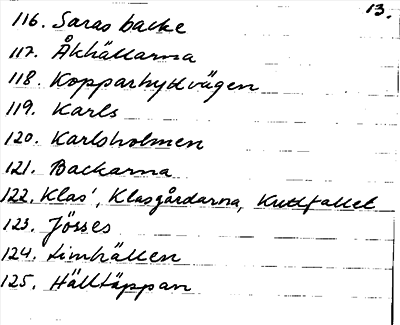 13.
116. Saras backe
117. Åkhällarna
118. Kopparhyttvägen
119. Karls
120. Karlsholmen
121. Backarna
122. Klas', Klasgårdarna, Kuttfallet
123. Jösses
124. Limhällen
125. Hälltäppan